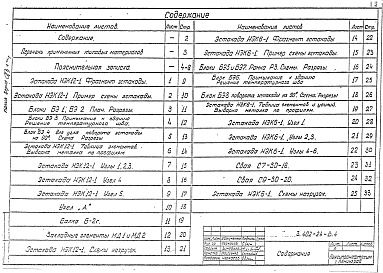 Содержание
Наименование листов. Лист Стр.
Содержание. - 2
Перечень примененных типовых материалов - 3
Пояснительная записка. - 4-8
Эстакада НЭК12-1. Фрагмент эстакады. 1 9
Эстакада НЭК12-1. Пример схемы эстакады. 2 10
Блоки БЭ1; БЭ2. План. Разрезы 3 11
Блоки БЭ3 Примыкание к зданию
Решение температурного шва. 4 12
Блок БЭ4 для узла поворота эстакады
на 90°. Схема. Разрезы 5 13
Эстакада НЭК12-1. Таблица элементов
Выборка металла по профилям. 6 14
Эстакада НЭК12-1. Узлы 1,2,3. 7 15
Эстакада НЭК12-1. Узел 4 8 16
Эстакада НЭК12-1. Узел 5. 9 17
Узел „А" 10 18
Балка Б-2с. 11 19
Закладные элементы МД1 и МД2 12 20
Эстакада НЭК12-1. Схемы нагрузок. 13 21
Наименование листов Лист Стр.
Эстакада НЭК6-1. Фрагмент эстакады 14 22
Эстакада НЭК6-1. Пример схемы эстакады 15 23
Блоки БЭ5 и БЭ7. Рама Р3. Схемы. Разрезы 16 24
Блок БЭ6. Примыкание к зданию
Решение температурного шва 17 25
Блок БЭ8 поворота эстакады на 90°. Схема. Разрезы 18 26
Эстакада НЭК6-1. Таблица элементов и усилий.
Выборка металла по профилям. 19 27
Эстакада НЭК6-1. Узел 1. 20 28
Эстакада НЭК6-1. Узлы 2,3. 21 29
Эстакада НЭК6-1. Узлы 4-6. 22 30
Свая С7-30-1К. 23 31
Свая С9-30-2К. 24 32
Эстакада НЭК6-1. Схемы нагрузок. 25 33
3.402-24 В.4
Содержание